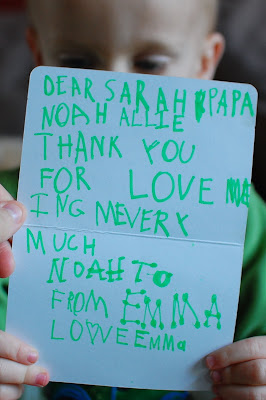 DEAR SARAH PAPA
NOAH ALLIE
THANK YOU
FOR LOVE
ING MEVERY
MUCH
NOAH TO
FROM EMMA
LOWE Emma